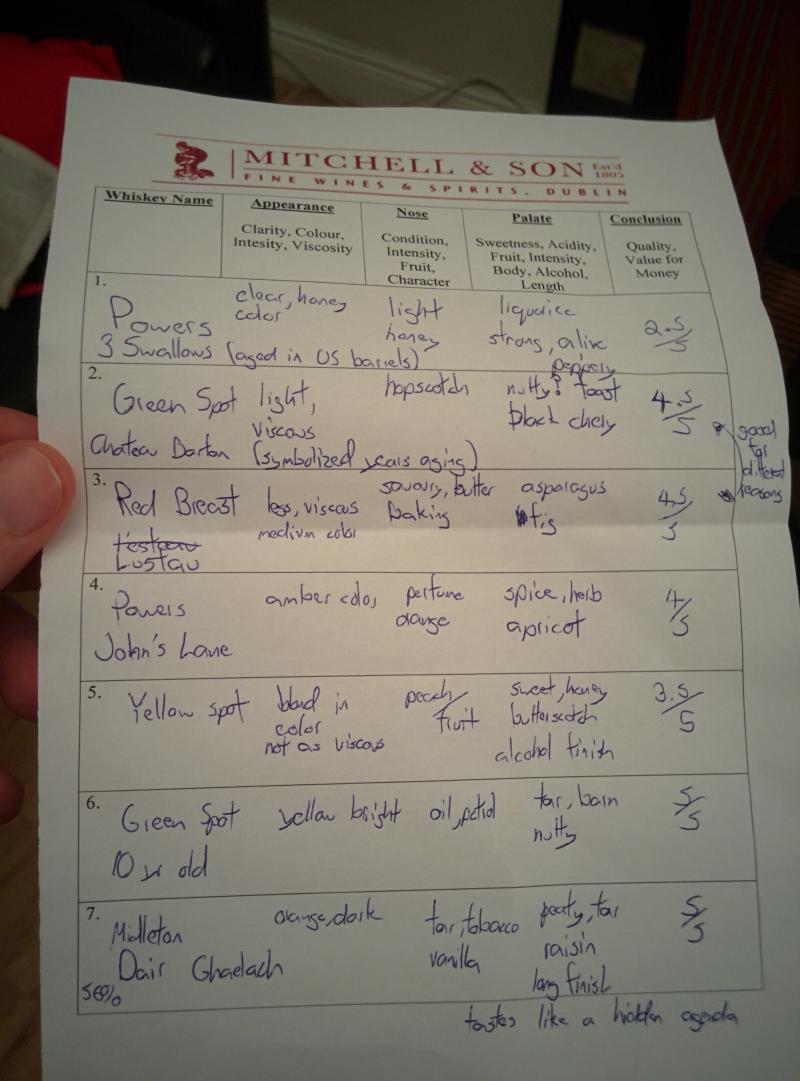 MITCHELL & SON Est'd 1805
FINE WINES & SPIRITS. DUBLIN
Whiskey Name
Appearance
Clarity, Colour,
Intesity, Viscosity
Nose
Condition,
Intensity,
Fruit,
Character
Palate
Sweetness, Acidity,
Fruit, Intensity,
Body, Alcohol,
Length
Conclusion
Quality,
Value for
Money
1.
Powers
3 Swallows (aged in US barrels)
clear, honey
color
light
honey
liquorice
strong, alive
peppery
2.5/5
2.
Green Spot
Chateau Barton (symbolized years aging)
light,
viscous
hopscotch
nutty? toast
black chery
4.5/5
good
for
different
reasons
3.
Red Breast
Lustau
less, viscous
medium color
savoury, butter
baking
aspalagus
fig
4.5/5
4.
Powers
John's Lane
amber color
perfume
orange
spice, herb
apricot
4/5
5.
Yellow spot
blond in
color
not as viscous
peach/
fruit
sweet, honey
butterscotch
alcohol finish
3.5/5
6.
Green Spot
10 yr old
yellow bright
oil, petrol
tar, barn
nutty
5/5
7.
Midleton
Dair Ghaelach
58%
orange, dark
tar, tobacco
vanilla
peaty, tar
raisin
long finish
5/5
tastes like a hidden agenda